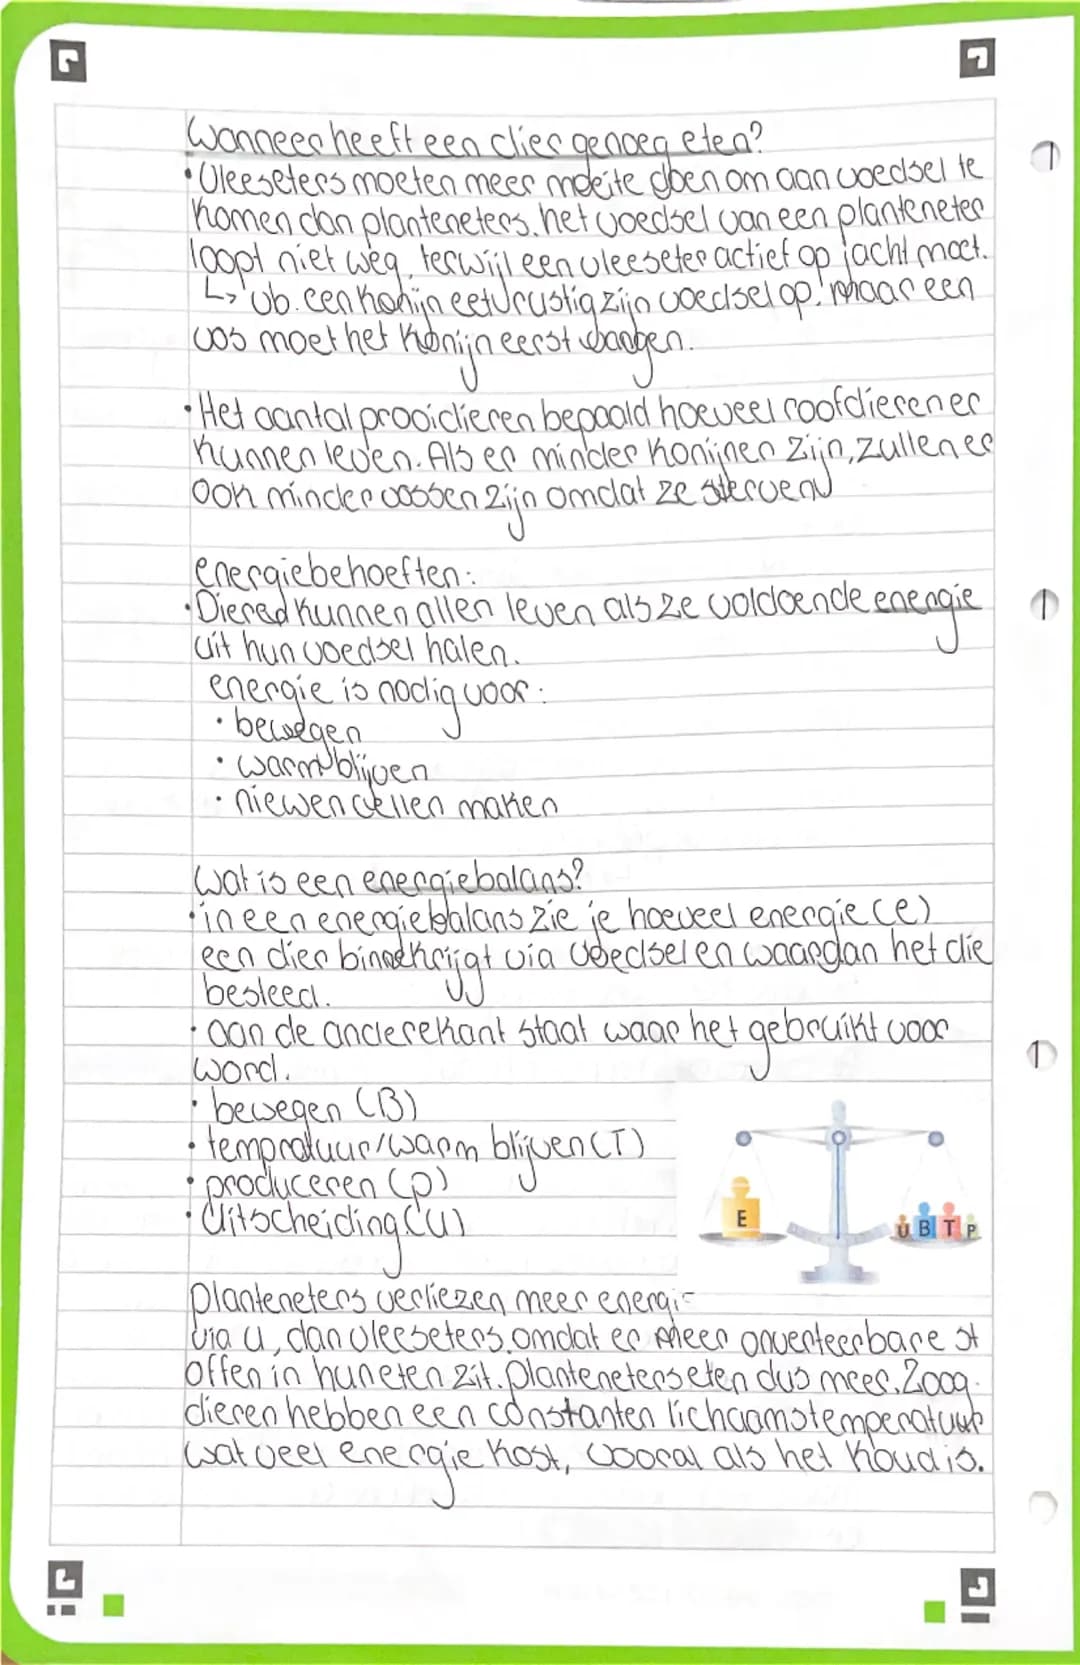 Wanneer heeft een dier genoeg eten?
• Vleeseters moeten meer moeite doen om aan voedsel te
komen dan planteneters. het voedsel van een planteneter
loopt niet weg, terwijl een vleeseter actief op jacht moet.
↳ vb. een konijn eet rustig zijn voedsel op, maar een
vos moet het konijn eerst vangen.
• Het aantal prooidieren bepaald hoeveel roofdieren er
kunnen leven. Als er minder konijnen zijn, zullen er
ook minder vossen zijn omdat ze sterven
energiebehoeften:
• Dieren kunnen allen leven als ze voldoende energie
uit hun voedsel halen.
energie is nodig voor:
• bewegen
• warm blijven
• niewen cellen maken
wat is een energiebalans?
• in een energiebalans zie je hoeveel energie (e)
een dier binnenkrijgt via voedsel en waaraan het die
besteed.
• aan de anderekant staat waar het gebruikt voor
word.
• bewegen (B)
• tempratuur/warm blijven (T)
• produceren (p)
• Uitscheiding (U)
E
U B T P
planteneters verliezen meer energie
via u, dan vleeseters. omdat er meer onverteerbare st
offen in hun eten zit. planteneters eten dus meer. Zoog-
dieren hebben een constanten lichaamstemperatuur
wat veel energie kost, vooral als het koud is.